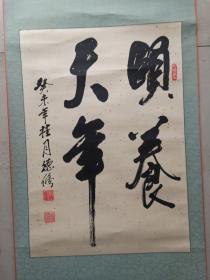 頤養
天年
癸未年桂月德修